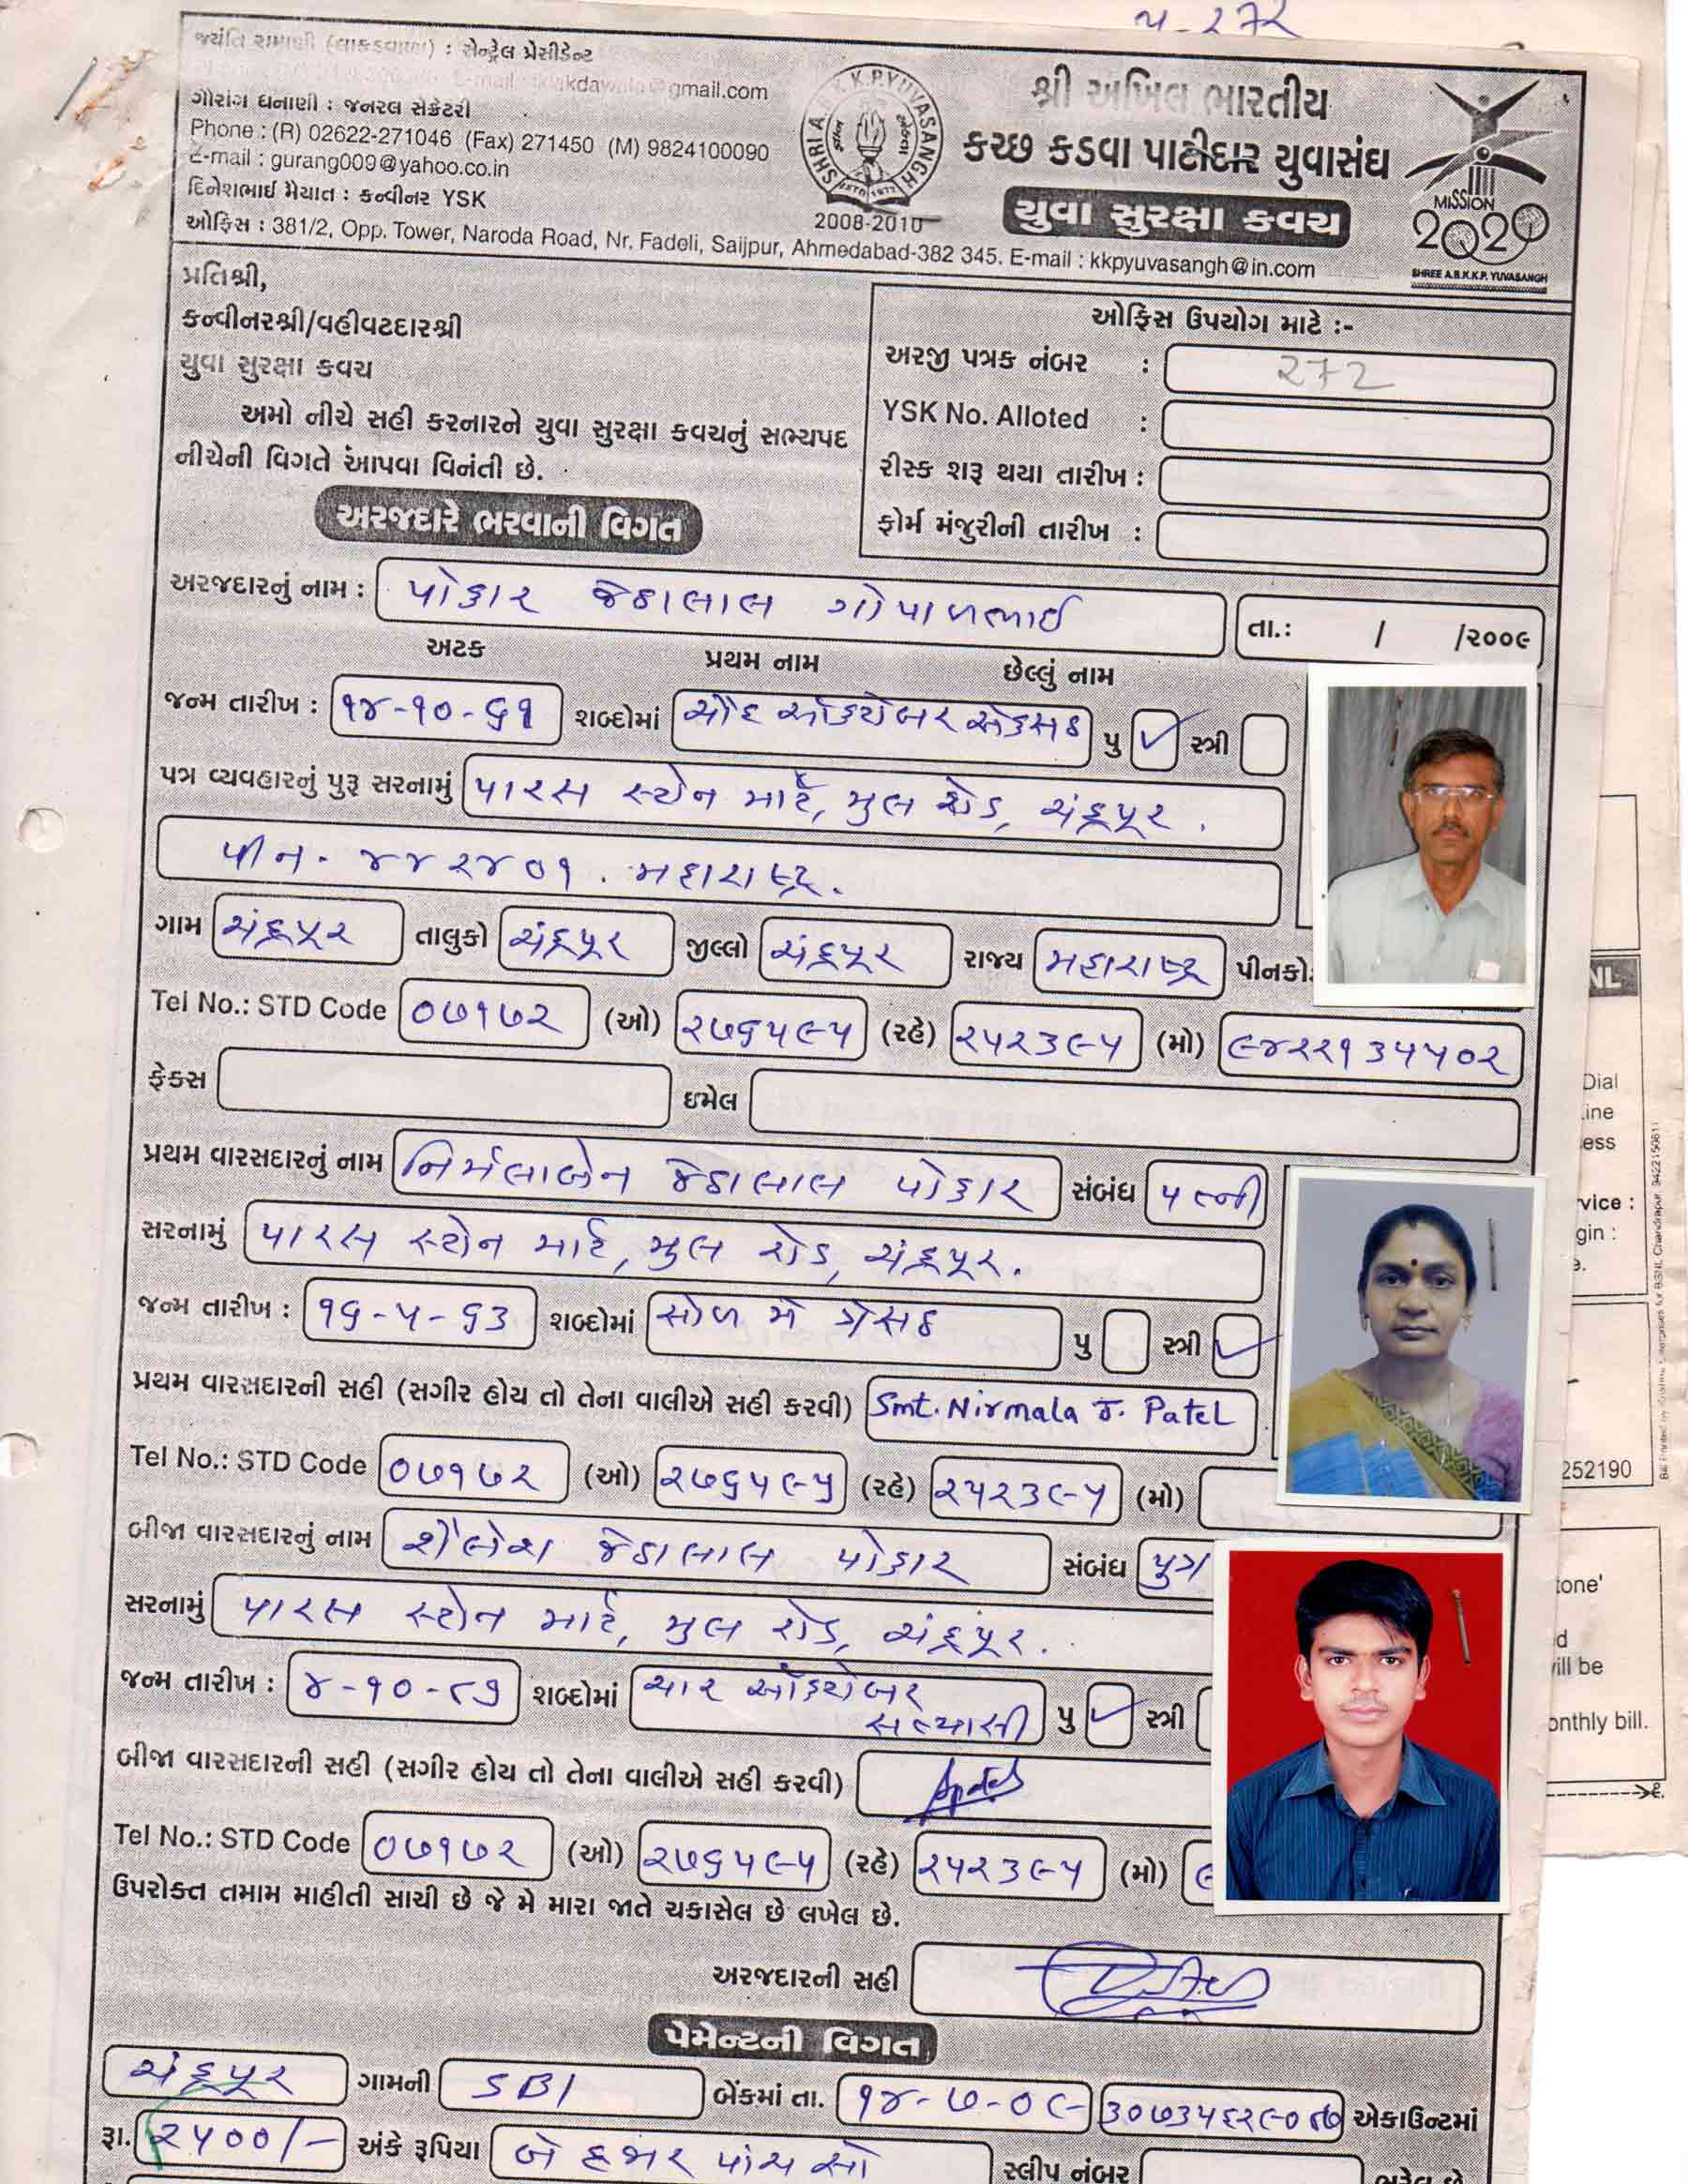 ૫-૨૭૨
જયંતિ રામાણી (લાકડાવાળા) : સેન્ટ્રલ પ્રેસીડેન્ટ
@gmail.com
ગોરાંગ ધનાણી : જનરલ સેક્રેટરી
Phone : (R) 02622-271046 (Fax) 271450 (M) 9824100090
E-mail : gurang009@yahoo.co.in
દિનેશભાઈ મૈયાત : કન્વીનર YSK
ઓફિસ : 381/2, Opp. Tower, Naroda Road, Nr. Fadeli, Saijpur, Ahmedabad-382 345. E-mail : kkpyuvasangh@in.com
SHRI A.B.K.K.P. YUVASANGH
ESTD 1977
2008-2010
શ્રી અખિલ ભારતીય
કચ્છ કડવા પાટીદાર યુવાસંઘ
યુવા સુરક્ષા કવચ
MISSION
2020
SHREE A.B.K.K.P. YUVASANGH
પ્રતિશ્રી,
કન્વીનરશ્રી/વહીવટદારશ્રી
યુવા સુરક્ષા કવચ
અમો નીચે સહી કરનારને યુવા સુરક્ષા કવચનું સભ્યપદ
નીચેની વિગતે આપવા વિનંતી છે.
ઓફિસ ઉપયોગ માટે :-
અરજી પત્રક નંબર : 272
YSK No. Alloted :
રીસ્ક શરૂ થયા તારીખ :
ફોર્મ મંજુરીની તારીખ :
અરજદારે ભરવાની વિગત
અરજદારનું નામ : પોકાર જેઠાલાલ ગોપાળભાઈ તા.: / /૨૦૦૯
અટક પ્રથમ નામ છેલ્લું નામ
જન્મ તારીખ : ૧૪-૧૦-૬૧ શબ્દોમાં ચૌદ ઓક્ટોબર એકસઠ પુ ✓ સ્ત્રી
પત્ર વ્યવહારનું પુરૂ સરનામું પારસ સ્ટોન માર્ટ, મુલ રોડ, ચંદ્રપૂર.
પીન. ૪૪૨૪૦૧. મહારાષ્ટ્ર.
ગામ ચંદ્રપૂર તાલુકો ચંદ્રપૂર જીલ્લો ચંદ્રપૂર રાજ્ય મહારાષ્ટ્ર પીનકો
Tel No.: STD Code ૦૭૧૭૨ (ઓ) ૨૭૬૫૯૫ (રહે) ૨૫૨૩૯૫ (મો) ૯૪૨૨૧૩૫૫૦૨
ફેક્સ ઇમેલ
પ્રથમ વારસદારનું નામ નિર્મલાબેન જેઠાલાલ પોકાર સંબંધ પત્ની
સરનામું પારસ સ્ટોન માર્ટ, મુલ રોડ, ચંદ્રપૂર.
જન્મ તારીખ : ૧૬-૫-૬૩ શબ્દોમાં સોળ મે ત્રેસઠ પુ સ્ત્રી ✓
પ્રથમ વારસદારની સહી (સગીર હોય તો તેના વાલીએ સહી કરવી) Smt. Nirmala J. Patel
Tel No.: STD Code ૦૭૧૭૨ (ઓ) ૨૭૬૫૯૫ (રહે) ૨૫૨૩૯૫ (મો)
બીજા વારસદારનું નામ શૈલેશ જેઠાલાલ પોકાર સંબંધ પુત્ર
સરનામું પારસ સ્ટોન માર્ટ, મુલ રોડ, ચંદ્રપૂર.
જન્મ તારીખ : ૪-૧૦-૮૭ શબ્દોમાં ચાર ઓક્ટોબર સત્યાસી પુ ✓ સ્ત્રી
બીજા વારસદારની સહી (સગીર હોય તો તેના વાલીએ સહી કરવી)
Tel No.: STD Code ૦૭૧૭૨ (ઓ) ૨૭૬૫૯૫ (રહે) ૨૫૨૩૯૫ (મો) ૯
ઉપરોક્ત તમામ માહીતી સાચી છે જે મે મારા જાતે ચકાસેલ છે લખેલ છે.
અરજદારની સહી
પેમેન્ટની વિગત
ચંદ્રપૂર ગામની SBI બેંકમાં તા. ૧૪-૭-૦૯ એકાઉન્ટમાં
રૂા. ૨૫૦૦/- અંકે રૂપિયા બે હજાર પાંચ સો સ્લીપ નંબર
NL
Dial
ine
ess
vice :
gin :
252190
tone'
d
ill be
onthly bill.